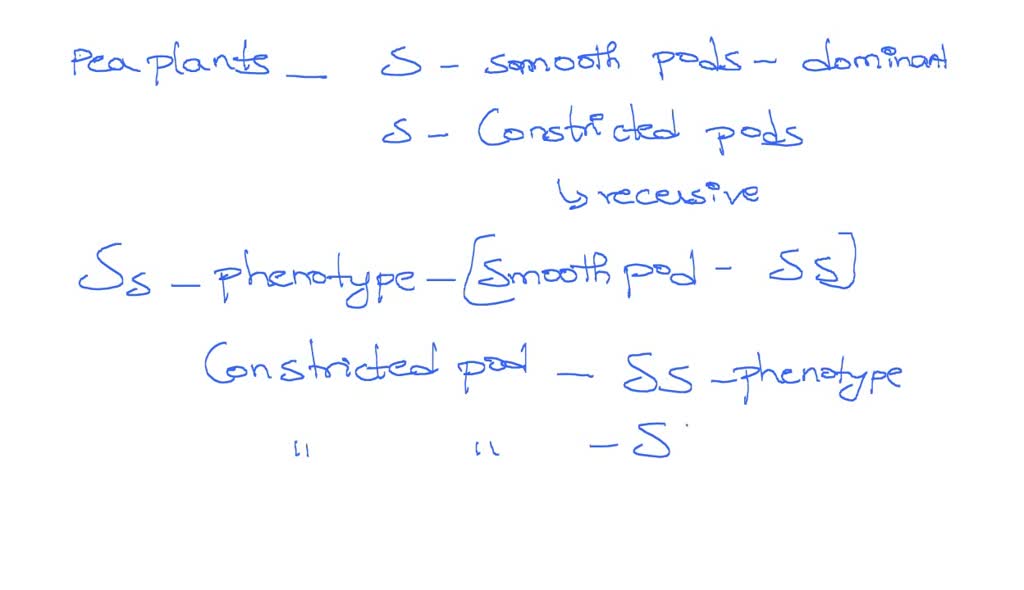 Pea plants - S - smooth pods - dominant
s - Constricted pods
↳ recessive
Ss - phenotype - [Smooth pod - SS]
Constricted pod - SS - phenotype
" " - S